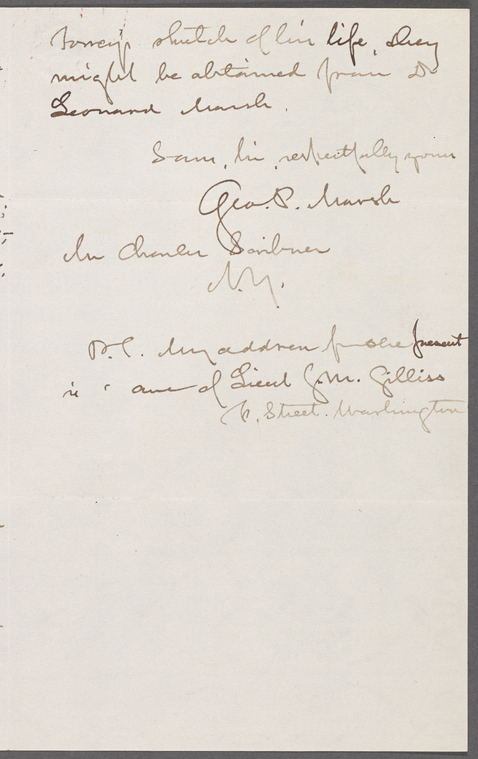 sketch of his life, they
might be obtained from Dr
Leonard Marsh.
I am, Sir, respectfully yours
Geo. P. Marsh
Mr Charles Scribner
N.Y.
P.S. My address for the present
is care of Lieut J. M. Gilliss
Street. Washington